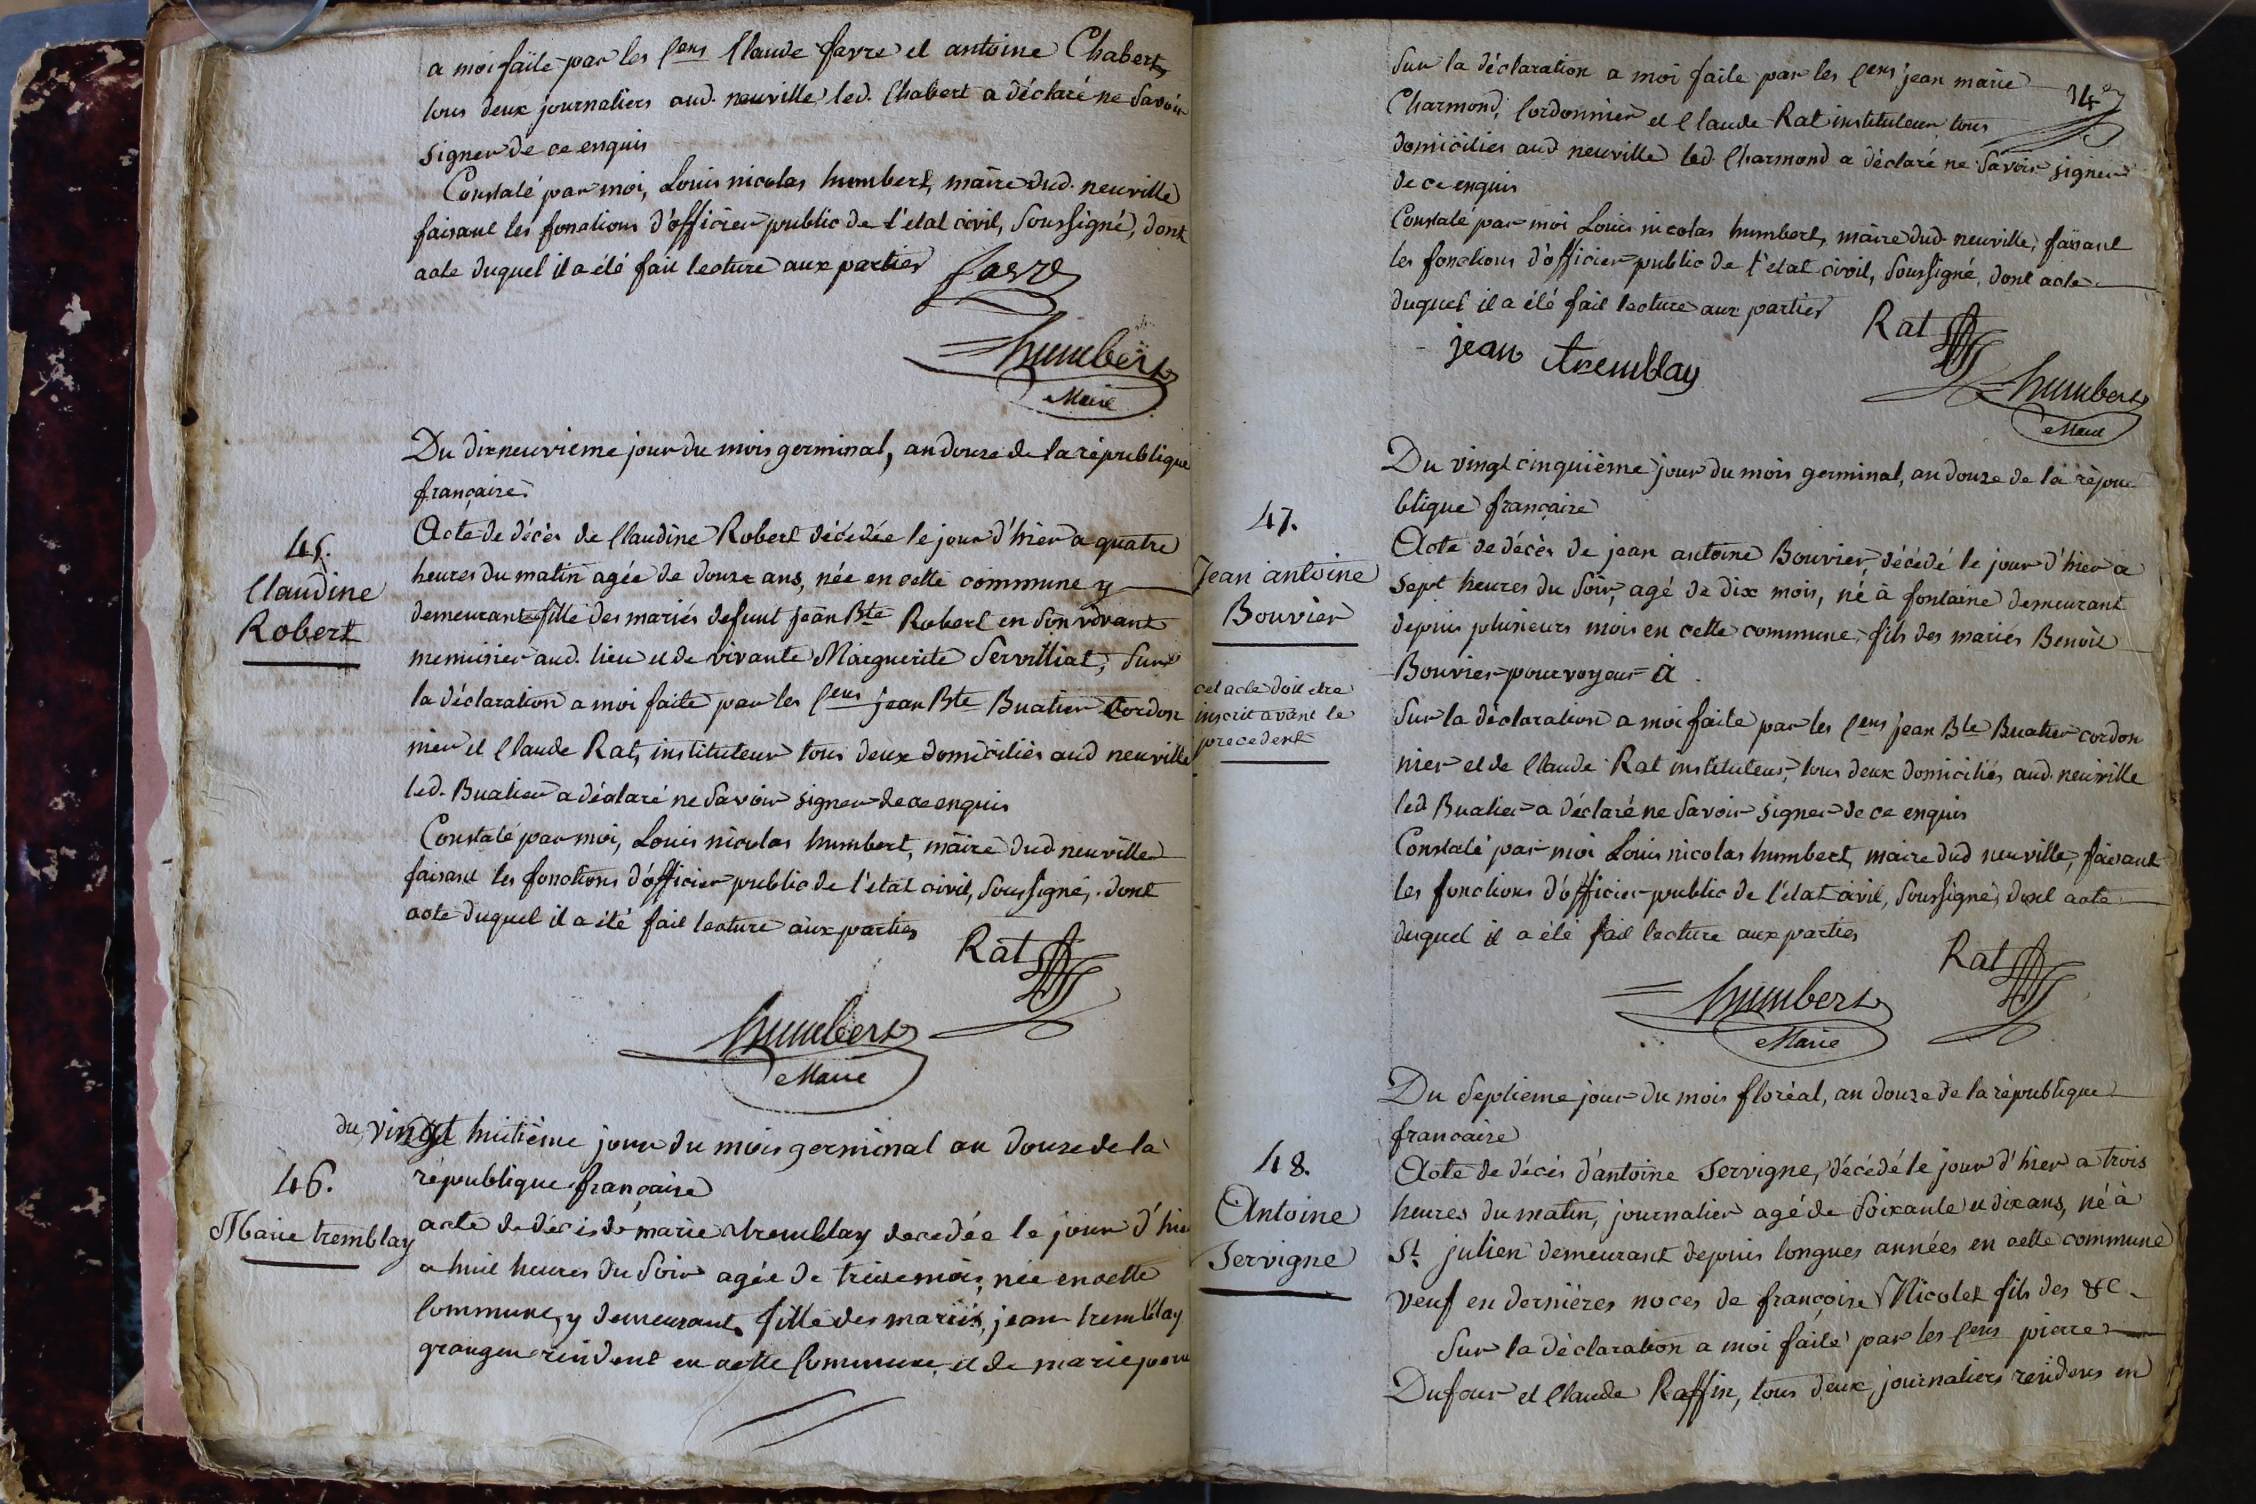 a moi faite par les Cens Claude favre et antoine Chabert
tous deux journaliers aud. neuville led. Chabert a déclaré ne Savoir
signer de ce enquis
Constaté par moi, Louis nicolas humbert, maire dud. neuville
faisant les fonctions d'officier public de l'etat civil, Soussigné, dont
acte duquel il a été fait lecture aux parties
favre
humbert
Maire
Du dixneuvieme jour du mois germinal, an douze de la république
française
45.
Claudine
Robert
Acte de décès de Claudine Robert décédée le jour d'hier a quatre
heures du matin agée de douze ans, née en cette commune y
demeurante fille des mariés defunt jean Bte Robert en son vivant
menuisier aud. lieu et de vivante Marguerite Servilliat, Sur
la déclaration a moi faite par les Cens jean Bte Buatier Cordon
nier et Claude Rat, instituteur tous deux domiciliés aud neuville
led. Buatier a déclaré ne Savoir signer de ce enquis
Constaté par moi, Louis nicolas humbert, maire dud neuville
faisant les fonctions d'officier public de l'etat civil, Soussigné, dont
acte duquel il a été fait lecture aux parties
Rat
humbert
Maire
du vingt huitième jour du mois germinal an douze de la
république française
46.
Marie tremblay
acte de décès de marie tremblay decedée le jour d'hier
a huit heures du Soir agée de treize mois, née en cette
Commune, y demeurant, fille des mariés, jean tremblay
granger résident en cette Commune et de marie
Sur la déclaration a moi faite par les Cens jean marie
34
Charmond, Cordonnier et Claude Rat instituteur tous
domiciliés aud neuville led. Charmond a déclaré ne Savoir signer
de ce enquis
Constaté par moi Louis nicolas humbert, maire dud neuville, faisant
les fonctions d'officier public de l'etat civil, Soussigné, dont acte
duquel il a été fait lecture aux parties
Rat
jean tremblay
humbert
Maire
Du vingt cinquième jour du mois germinal, an douze de la répu
blique française
47.
Jean antoine
Bouvier
cet acte doit etre
inscrit avant le
precedent
Acte de décès de jean antoine Bouvier, décédé le jour d'hier a
sept heures du Soir, agé de dix mois, né à fontaine demeurant
depuis plusieurs mois en cette commune, fils des mariés Benoît
Bouvier pourvoyeur à
Sur la déclaration a moi faite par les Cens jean Bte Buatier cordon
nier et de Claude Rat instituteur, tous deux domiciliés aud. neuville
led Buatier a déclaré ne Savoir signer de ce enquis
Constaté par moi Louis nicolas humbert, maire dud neuville, faisant
les fonctions d'officier public de l'état civil, Soussigné, dont acte
duquel il a été fait lecture aux parties
Rat
humbert
Maire
Du Septieme jour du mois floréal, an douze de la république
francaise
48.
Antoine
Servigne
Acte de décès d'antoine Servigne, décédé le jour d'hier a trois
heures du matin, journalier agé de Soixante et dix ans, né à
St. julien demeurant depuis longues années en cette commune
veuf en dernières noces de françoise Nicolet fils des &c.
Sur la déclaration a moi faite par les Cens pierre
Dufour et Claude Raffin, tous deux journaliers residens en